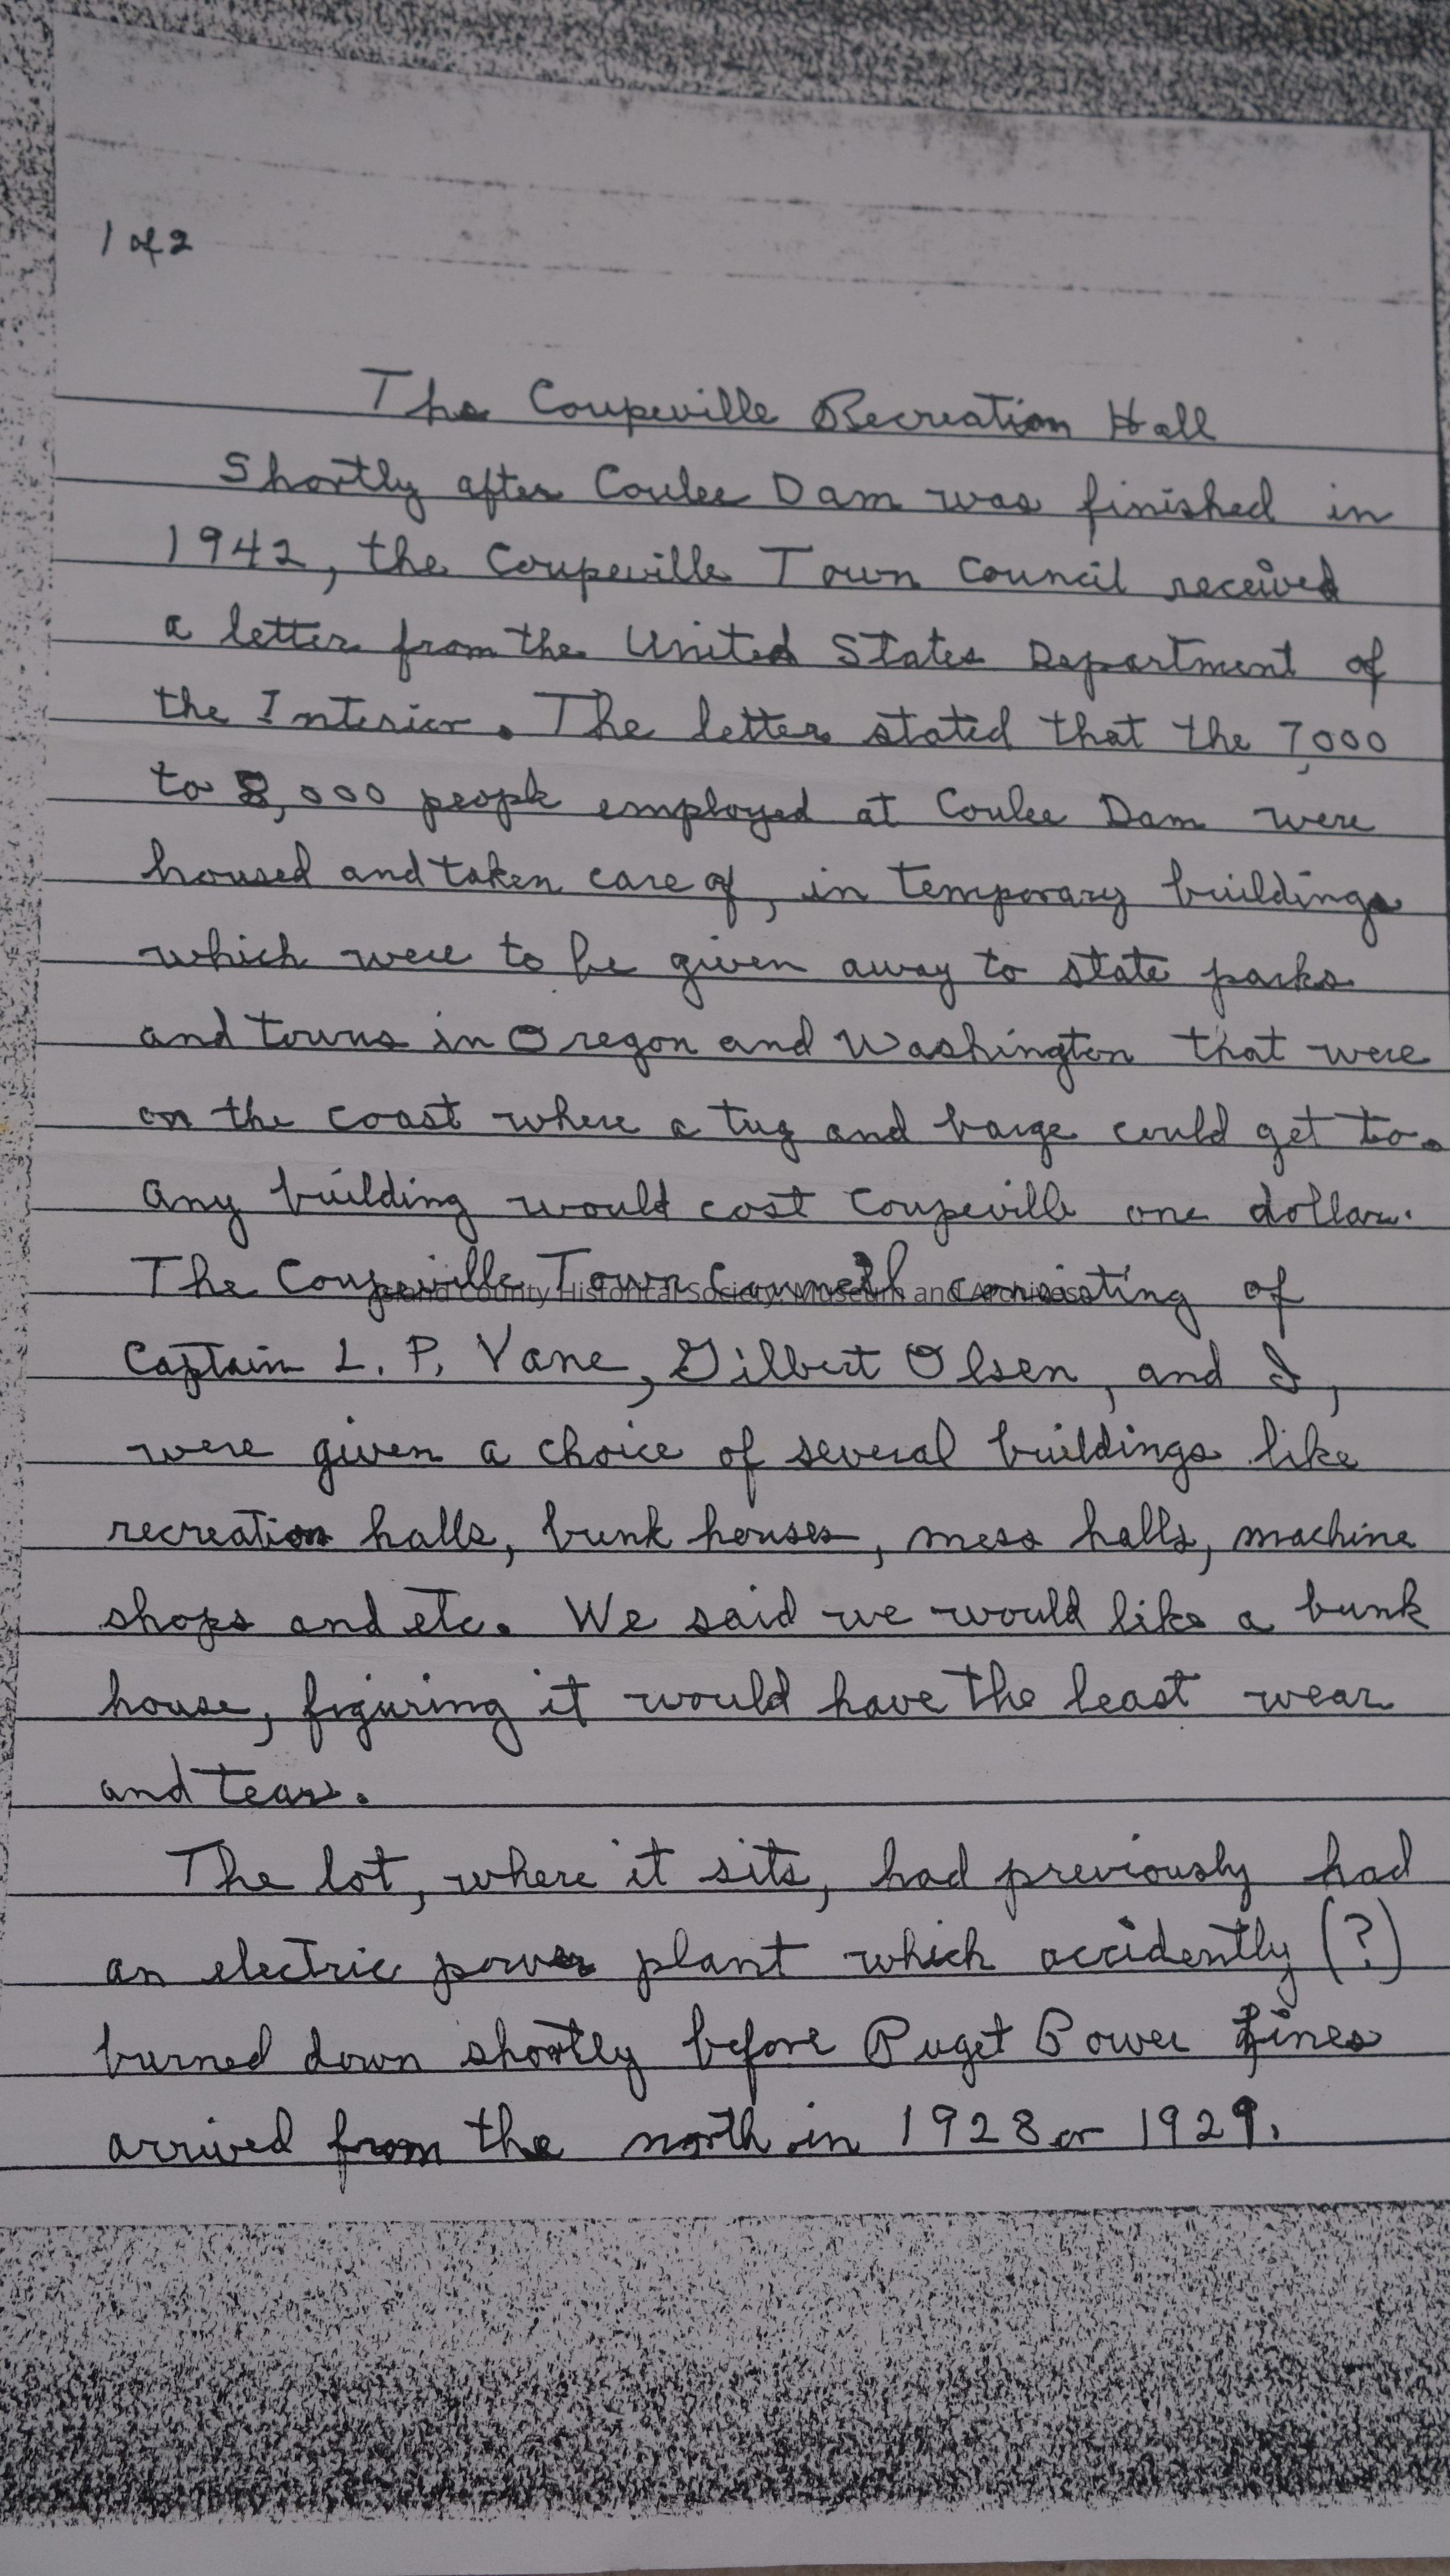 1 of 2
The Coupeville Recreation Hall
Shortly after Coulee Dam was finished in
1942, the Coupeville Town Council received
a letter from the United States Department of
the Interior. The letter stated that the 7,000
to 8,000 people employed at Coulee Dam were
housed and taken care of, in temporary buildings
which were to be given away to state parks
and towns in Oregon and Washington that were
on the coast where a tug and barge could get to.
Any building would cost Coupeville one dollar.
The Coupeville Town Council consisting of
Island County Historical Society, Museum and Archives
Captain L. P. Vane, Gilbert Olsen, and I,
were given a choice of several buildings like
recreation halls, bunk houses, mess halls, machine
shops and etc. We said we would like a bunk
house, figuring it would have the least wear
and tear.
The lot, where it sits, had previously had
an electric power plant which accidently (?)
burned down shortly before Puget Power lines
arrived from the north in 1928 or 1929.